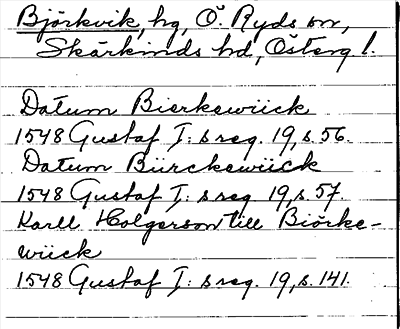 Björkvik, hg, Ö. Ryds sn,
Skärkinds hd, Österg l.
Datum Bierkewiick
1548 Gustaf I: s reg. 19, s. 56.
Datum Biirckewiick
1548 Gustaf I: s reg. 19, s. 57.
Karll Holgerson till Biörke-
wiick
1548 Gustaf I: s reg. 19, s. 141.